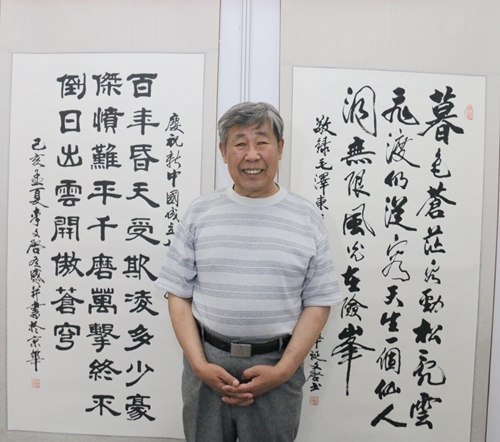 暮色蒼茫看勁松亂雲
飛渡仍從容天生一個仙人
洞無限風光在險峯
敬録毛澤東
文啓書
慶祝新中國成立
百年昏天受欺凌多少豪
傑憤難平千磨萬擊終不
倒日出雲開傲蒼穹
己亥孟夏李文啓有感并書於京華